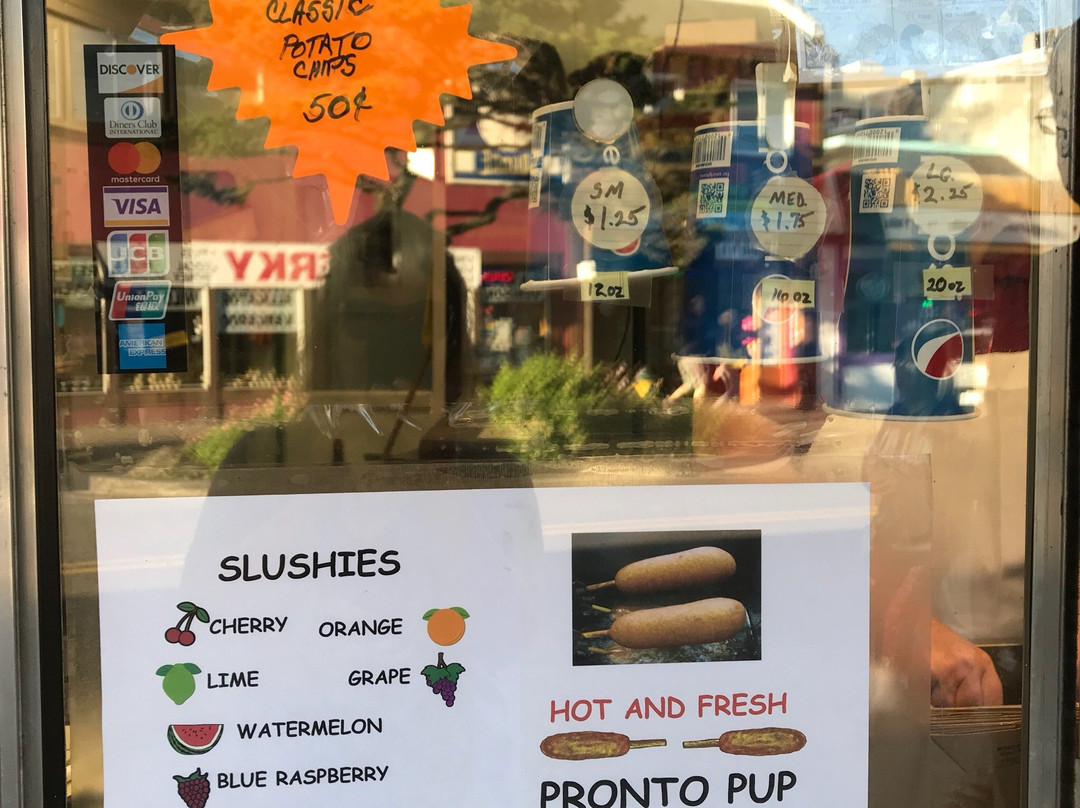 CLASSIC
POTATO
CHIPS
50¢
DISCOVER
Diners Club
INTERNATIONAL
mastercard
VISA
JCB
UnionPay
银联
AMERICAN
EXPRESS
SM
$1.25
12oz
MED.
$1.75
16oz
LG.
$2.25
20oz
SLUSHIES
CHERRY ORANGE
LIME GRAPE
WATERMELON
BLUE RASPBERRY
HOT AND FRESH
PRONTO PUP